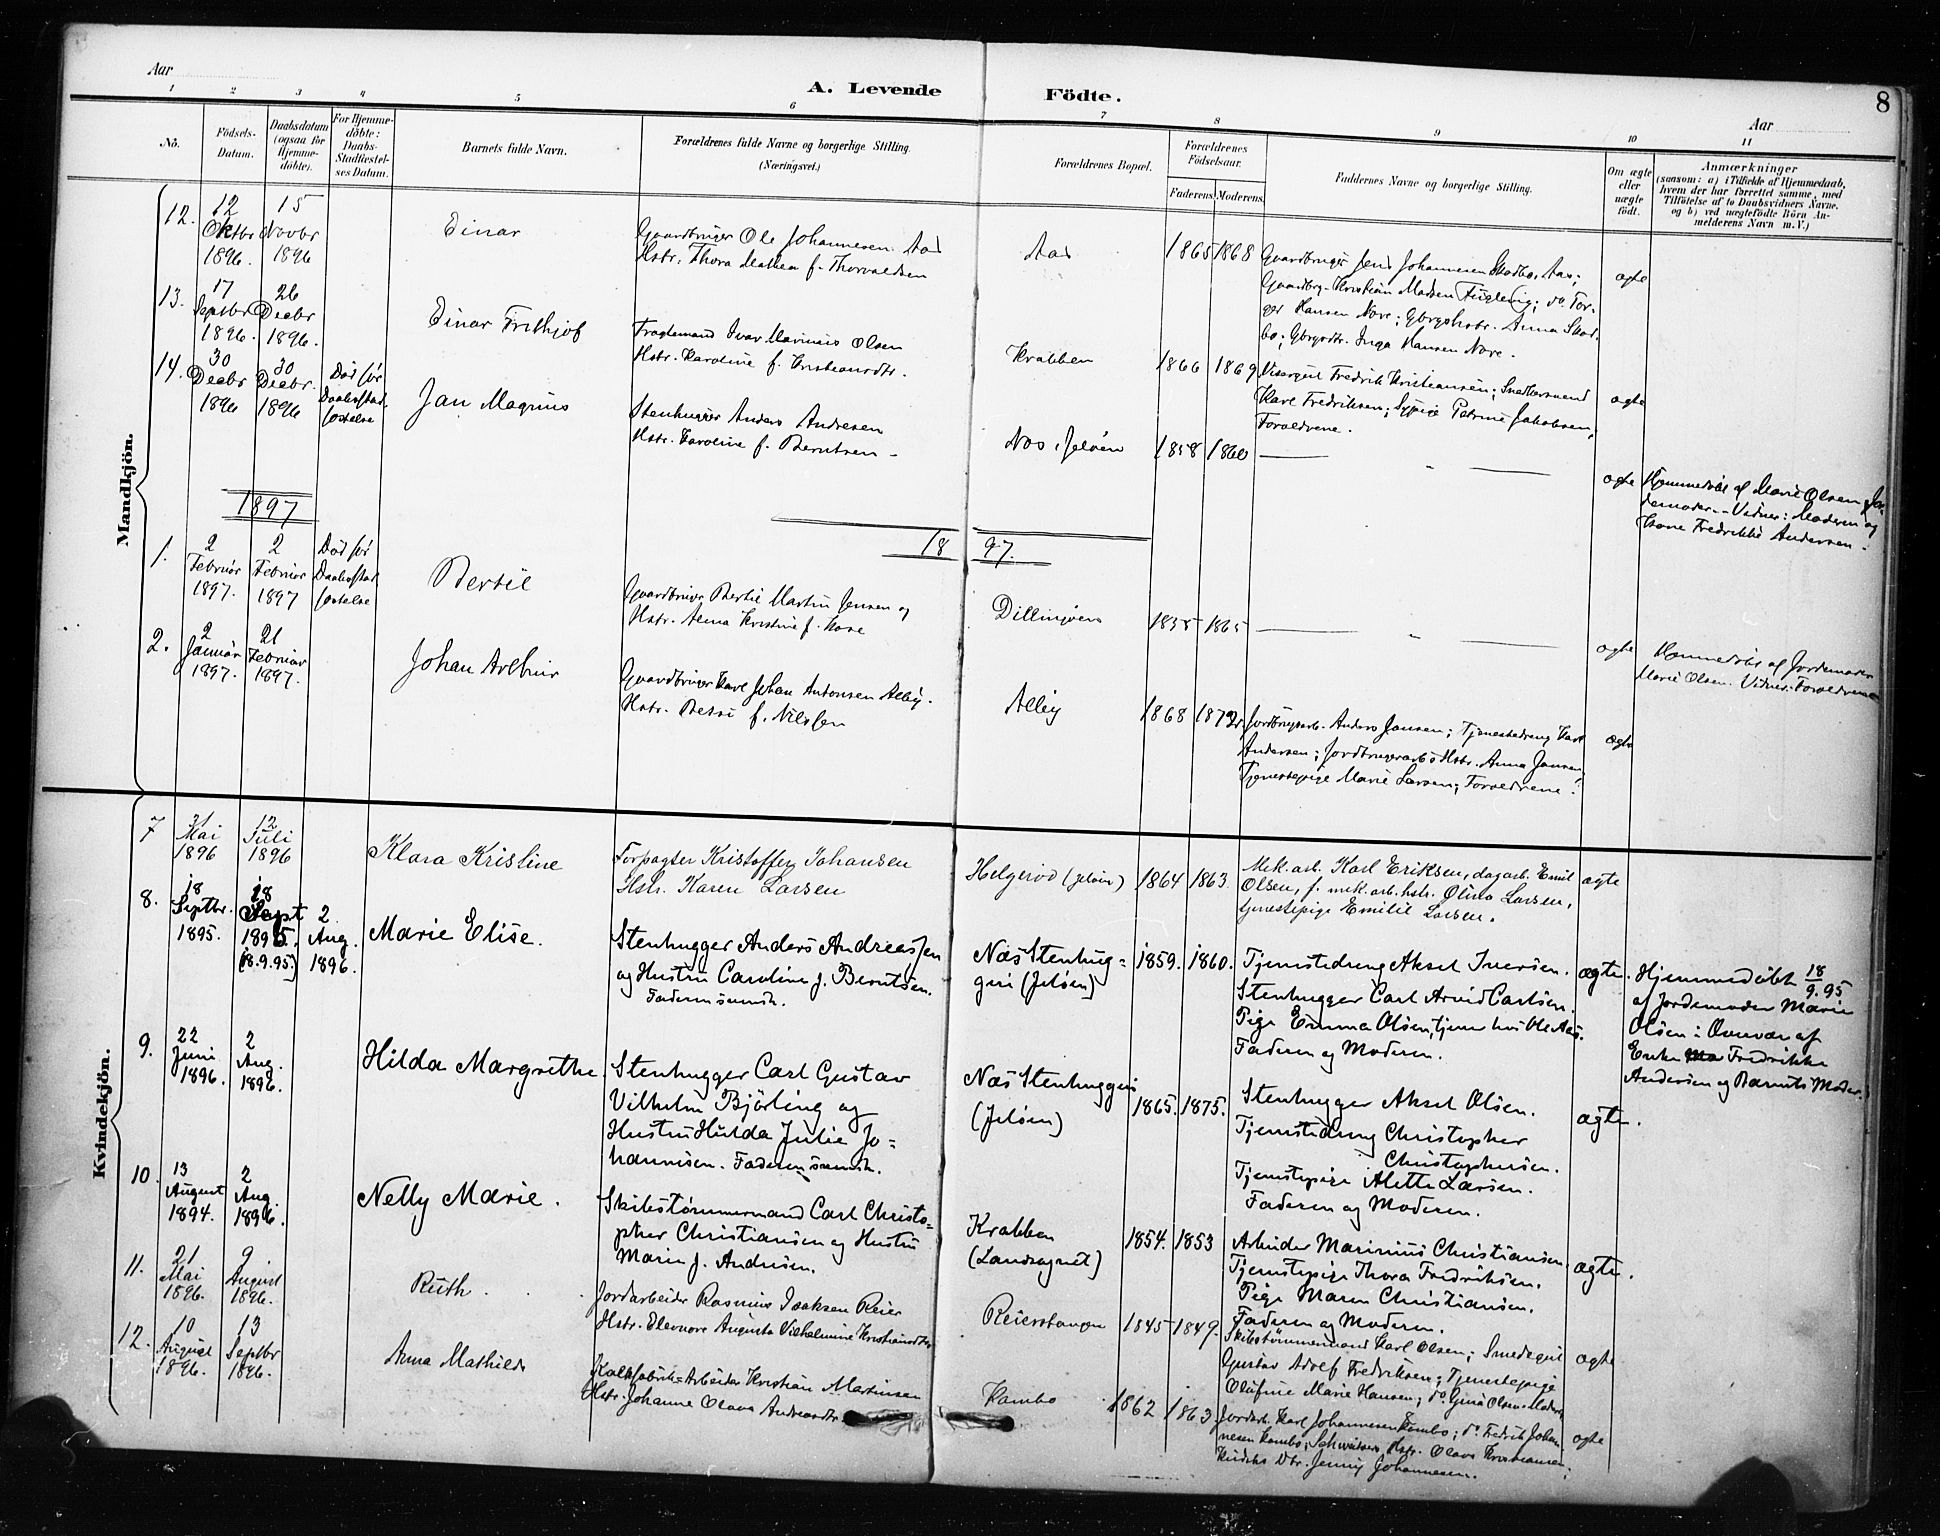 Aar
A. Levende Födte.
8
Aar
1 2 3 4 5 6 7 8 9 10 11
No.
Födsels-
Datum.
Daabsdatum
(ogsaa for
Hjemme-
döbte).
For Hjemme-
döbte:
Daabs-
Stadfæstel-
ses Datum.
Barnets fulde Navn.
Forældrenes fulde Navne og borgerlige Stilling.
(Næringsvei.)
Forældrenes Bopæl.
Forældrenes
Födselsaar.
Faderens. Moderens.
Faddernes Navne og borgerlige Stilling.
Om ægte
eller
uægte
födt.
Anmærkninger
(saasom: a) i Tilfælde af Hjemmedaab,
hvem der har forrettet samme, med
Tilföielse af to Daabsvidners Navne.
og b) ved uægtefödte Börn An-
melderens Navn m. V.)
Mandkjön.
12.
12
Oktbr
1896.
15
Novbr
1896
Einar
Gaardbruger Ole Johannesen Aas
Hstr. Thora Mathea f. Thorvaldsen
Aas
1865 1868
Gaardbruger Jens Johannesen Skadbo, Aas;
Gaardbrg. Kristian Madsen Fuglevig; do Tor-
ger Hansen Nore; Gbrgshstr. Anna Skad-
bo; Gbrgrdtr. Inga Hansen Nore.
ægte
13.
17
Septbr
1896.
26
Decbr
1896.
Einar Frithjof
Fragtemand Ivar Marinius Olsen
Hstr. Karoline f. Kristiansdtr.
Krabben
1866 1869
Visergut Fredrik Kristiansen; Snedkersvend
Karl Fredriksen; Sypige Petrine Jakobsen,
Forældrene.
ægte
14.
30
Decbr
1896
30
Decbr.
1896
Død før
Daabsstad-
fæstelse
Jan Magnus
Stenhugger Anders Andresen
Hstr. Karoline f. Berntsen
Næs, Jeløen
1858 1860
ægte
Hjemmedøbt af Marie Olsen, Jor-
demoder. Vidner: Moderen og
Kone Fredrikke Andersen.
1897
1897.
1.
2
Februar
1897.
2
Februar
1897
Død før
Daabsstad-
fæstelse
Bertil
Gaardbruger Bertil Martin Jensen og
Hstr. Anna Kristine f.
Dillingøen
1835 1865
ægte
Hjemmedøbt af Jordemoder
Marie Olsen. Vidner: Forældrene
2.
2
Januar
1897.
21
Februar
1897.
Johan Arthur
Gaardbruger Karl Johan Antonsen Alby.
Hstr. Betsi f. Nilssen
Alby
1868 1872
Jordbrugsarb. Anders Jansen; Tjenestedreng Karl
Andersen; Jordbrugerarb.s Hstr. Anna Jansen,
Tjenestepige Marie Larsen; Forældrene.
ægte
Kvindekjön.
7
31
Mai
1896
12
Juli
1896
Klara Kristine
Forpagter Kristoffer Johansen
Hstr. Karen Larsen
Helgerød (Jeløen)
1864 1863
Mek. arb. Karl Eriksen, dagarb. Emil
Olsen, f. mek. arb. hstr. Olina Larsen,
tjenestepige Emilie Larsen.
ægte
8.
18
Septbr.
1895.
18
Sept
1895.
(18.9.95.)
2.
Aug.
1896.
Marie Elise.
Stenhugger Anders Andreassen
og Hustru Caroline f. Berntsen.
Faderen svensk.
Næs Stenhug-
geri (Jeløen)
1859. 1860.
Tjenestedreng Aksel Iversen.
Stenhugger Carl Arvid Carlsen.
Pige Emma Olsen, tjener hos Ole Aas.
Faderen og Moderen.
ægte.
Hjemmedøbt 18/9.95
af Jordemoder Marie
Olsen i Overvær af
Enke Fredrikke
Andersen og Barnets Moder.
9.
22
Juni
1896.
2
Aug.
1896.
Hilda Margrethe
Stenhugger Carl Gustav
Vilhelm Bjørling og
Hustru Hulda Julie Jo-
hannisen. Faderen svensk.
Næs Stenhuggeri
(Jeløen)
1865. 1875.
Stenhugger Aksel Olsen.
Tjenestedreng Christopher
Christophersen.
Tjenestepige Alette Larsen.
Faderen og Moderen.
ægte.
10.
13
August
1894.
2
Aug.
1896.
Nelly Marie.
Skibstømmermand Carl Christo-
pher Christiansen og Hustru
Maren f. Andersen.
Krabben
(Landsognet)
1854. 1853
Arbeider Marinius Christiansen.
Tjenestepige Thora Fredriksen.
Pige Maren Christiansen.
Faderen og Moderen.
ægte.
11.
21
Mai
1896.
9
August
1896.
Ruth
Jordarbeider Rasmus Isaksen Reier
Hstr. Eleonore Augusta Vilhelmine Kristiansdtr
Reierstangen
1845 1849.
Skibstømmermand Karl Olsen; Smedsgut
Gustav Adolf Fredriksen; Tjenestepige
Olufine Marie Hansen; do. Gina Olsen; Moderen
ægte
12.
10
August
1896.
13
Septbr
1896.
Anna Mathilde
Kalkfabrik-Arbeider Kristian Martinsen
Hstr. Johanne Olava Andreasdtr.
Kambo
1862 1863
Jordarb. Karl Johannesen Kambo; do Fredrik Johan-
nesen Kambo; Schweitsers Hstr. Olava Kristiansen;
Dtr. Jenny Johannesen.
ægte